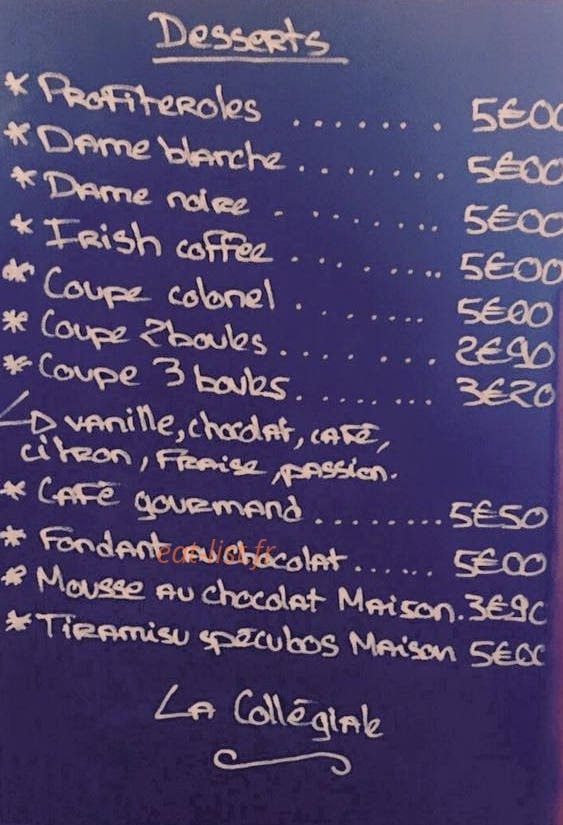 Desserts
* Profiteroles ........ 5€00
* Dame blanche ........ 5€00
* Dame noire . ........ 5€00
* Irish coffee ........ 5€00
* Coupe colonel ........ 5€00
* Coupe 2 boules ........ 2€90
* Coupe 3 boules ........ 3€20
vanille, chocolat, café,
citron, fraise, passion.
* Café gourmand ......... 5€50
* Fondant au chocolat ...... 5€00
eat-list.fr
* Mousse au chocolat Maison. 3€90
* Tiramisu spéculoos Maison 5€00
La Collégiale